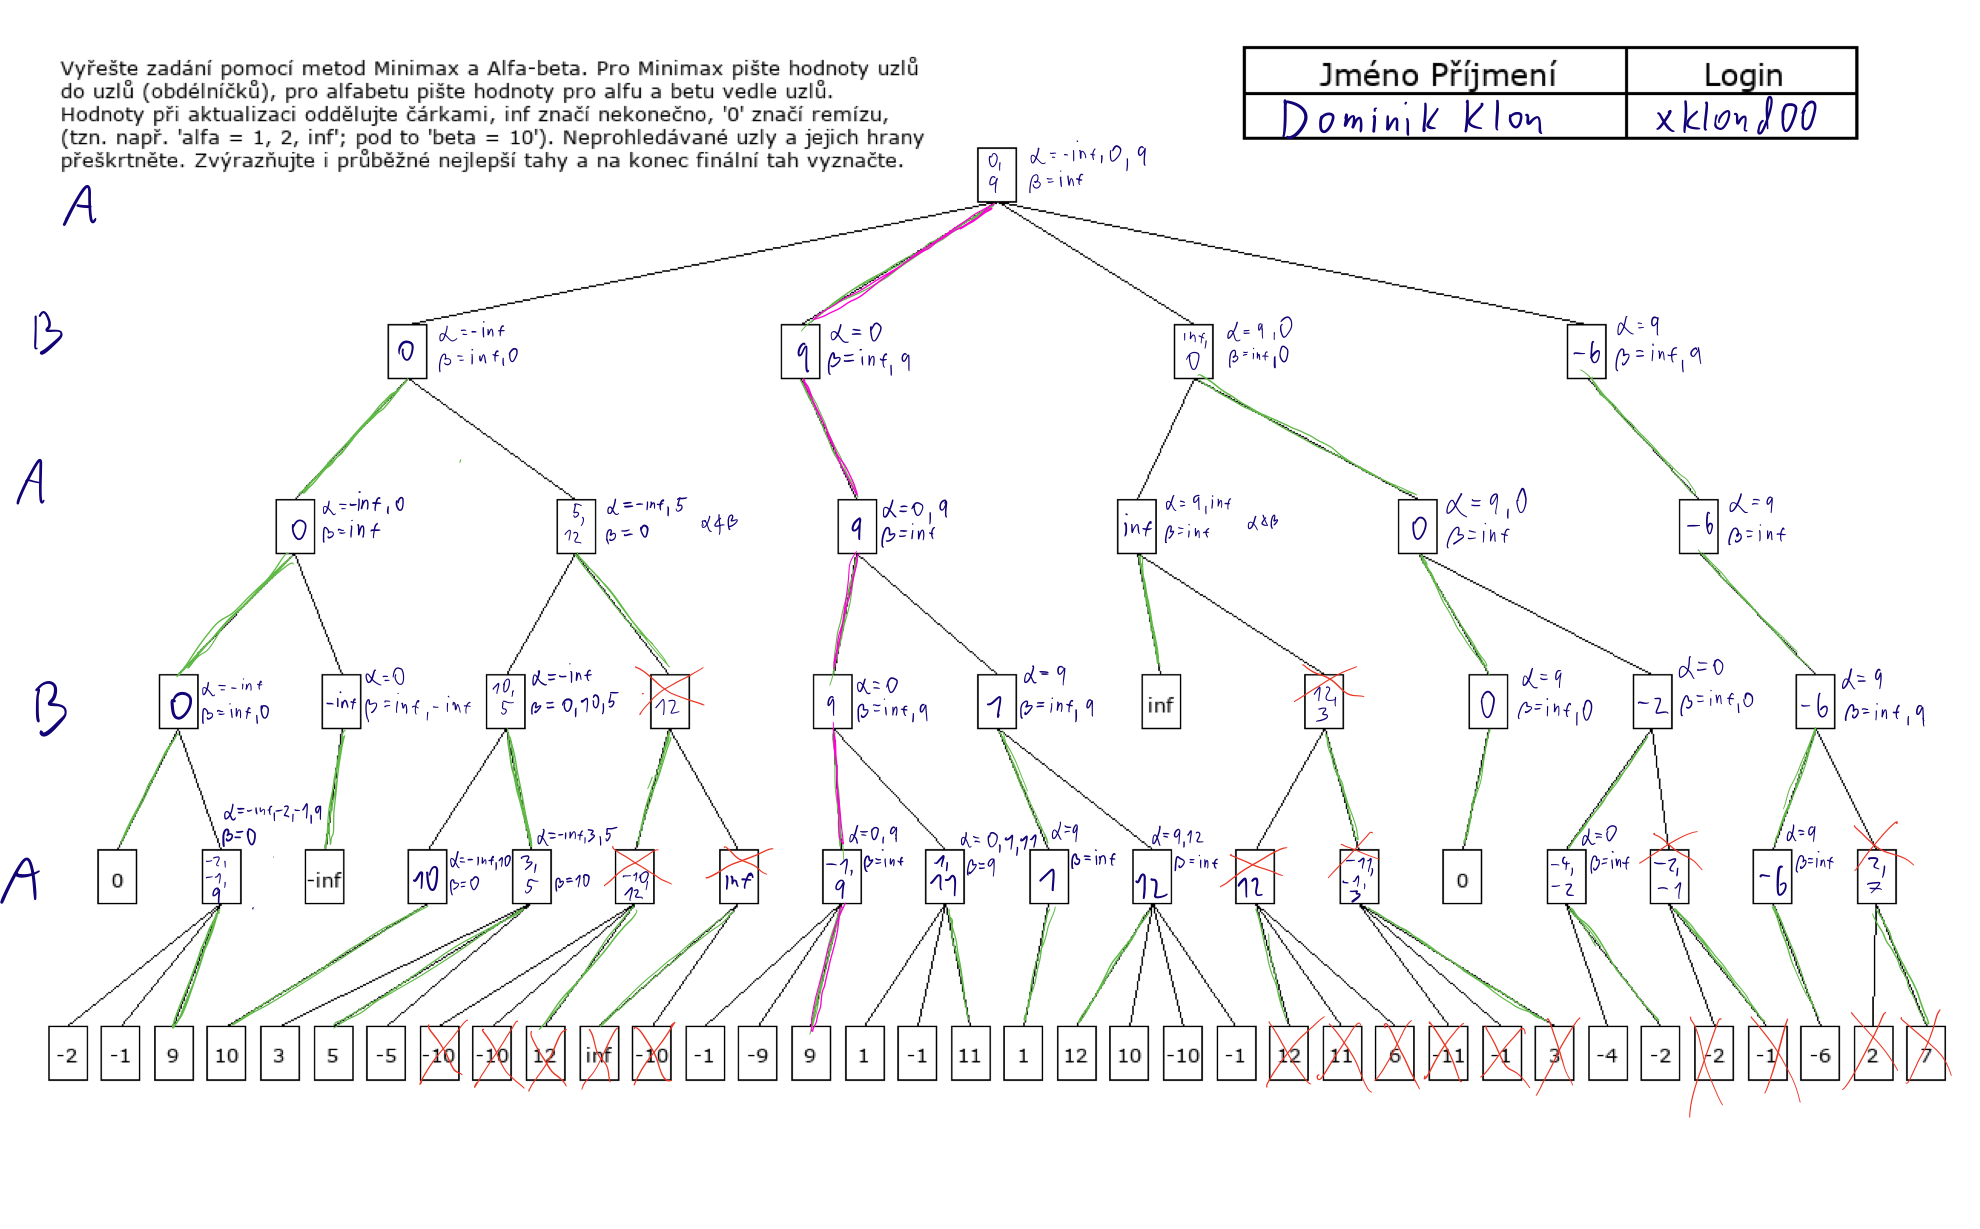 Vyřešte zadání pomocí metod Minimax a Alfa-beta. Pro Minimax pište hodnoty uzlů
do uzlů (obdélníčků), pro alfabetu pište hodnoty pro alfu a betu vedle uzlů.
Hodnoty při aktualizaci oddělujte čárkami, inf značí nekonečno, '0' značí remízu,
(tzn. např. 'alfa = 1, 2, inf'; pod to 'beta = 10'). Neprohledávané uzly a jejich hrany
přeškrtněte. Zvýrazňujte i průběžné nejlepší tahy a na konec finální tah vyznačte.
Jméno Příjmení Login
Dominik Klon xklond00
A
0, 9 α=-inf,0,9
β=inf
B
0 α=-inf
β=inf,0
9 α=0
β=inf,9
inf, 0 α=9,0
β=inf,0
-6 α=9
β=inf,9
A
0 α=-inf,0
β=inf
5, 12 α=-inf,5
β=0
9 α=0,9
β=inf
inf α=9,inf
β=inf
0 α=9,0
β=inf
-6 α=9
β=inf
B
0 α=-inf
β=inf,0
-inf α=0
β=inf,-inf
10, 5 α=-inf
β=0,10,5
12
9 α=0
β=inf,9
1 α=9
β=inf,9
inf
12, 3
0 α=9
β=inf,0
-2 α=0
β=inf,0
-6 α=9
β=inf,9
A
0
-2, -1, 9 α=-inf,-2,-1,9
β=0
-inf
10 α=-inf,10
β=0
3, 5 α=-inf,3,5
β=10
-10, 12
inf
-1, 9 α=0,9
β=inf
1, 11 α=0,1,11
β=9
1 α=9
β=inf
12 α=9,12
β=inf
12
-11, -1, 3
0
-4, -2 α=0
β=inf
-2, -1
-6 α=9
β=inf
2, 7
-2 -1 9 10 3 5 -5 -10 -10 12 inf -10 -1 -9 9 1 -1 11 1 12 10 -10 -1 12 11 6 -11 -1 3 -4 -2 -2 -1 -6 2 7